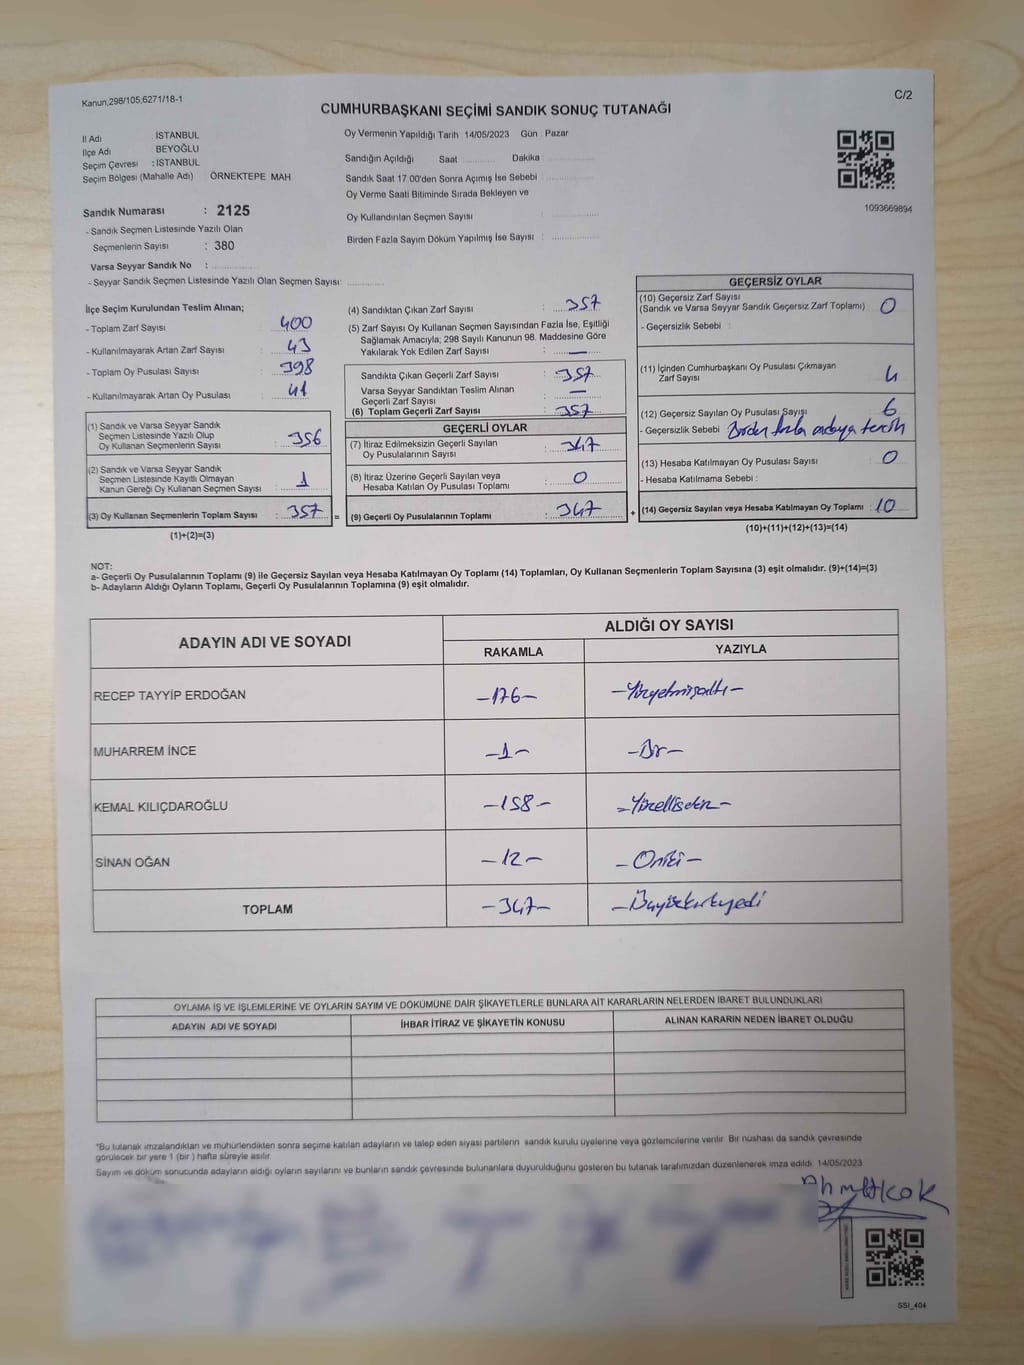 Kanun,298/105;6271/18-1
C/2
CUMHURBAŞKANI SEÇİMİ SANDIK SONUÇ TUTANAĞI
İl Adı İSTANBUL
İlçe Adı BEYOĞLU
Seçim Çevresi : İSTANBUL
Seçim Bölgesi (Mahalle Adı) ÖRNEKTEPE MAH
Sandık Numarası : 2125
- Sandık Seçmen Listesinde Yazılı Olan
Seçmenlerin Sayısı : 380
Varsa Seyyar Sandık No :
- Seyyar Sandık Seçmen Listesinde Yazılı Olan Seçmen Sayısı:
Oy Vermenin Yapıldığı Tarih : 14/05/2023 Gün : Pazar
Sandığın Açıldığı Saat Dakika :
Sandık Saat 17.00'den Sonra Açımış İse Sebebi :
Oy Verme Saati Bitiminde Sırada Bekleyen ve
Oy Kullandırılan Seçmen Sayısı :
Birden Fazla Sayım Döküm Yapılmış İse Sayısı :
1093669894
İlçe Seçim Kurulundan Teslim Alınan;
- Toplam Zarf Sayısı : 400
- Kullanılmayarak Artan Zarf Sayısı : 43
- Toplam Oy Pusulası Sayısı : 398
- Kullanılmayarak Artan Oy Pusulası : 41
(1) Sandık ve Varsa Seyyar Sandık
Seçmen Listesinde Yazılı Olup
Oy Kullanan Seçmenlerin Sayısı : 356
(2) Sandık ve Varsa Seyyar Sandık
Seçmen Listesinde Kayıtlı Olmayan
Kanun Gereği Oy Kullanan Seçmen Sayısı : 1
(3) Oy Kullanan Seçmenlerin Toplam Sayısı : 357 =
(1)+(2)=(3)
(4) Sandıktan Çıkan Zarf Sayısı : 357
(5) Zarf Sayısı Oy Kullanan Seçmen Sayısından Fazla İse, Eşitliği
Sağlamak Amacıyla; 298 Sayılı Kanunun 98. Maddesine Göre
Yakılarak Yok Edilen Zarf Sayısı : —
Sandıkta Çıkan Geçerli Zarf Sayısı : 357
Varsa Seyyar Sandıktan Teslim Alınan
Geçerli Zarf Sayısı : —
(6) Toplam Geçerli Zarf Sayısı : 357
GEÇERLİ OYLAR
(7) İtiraz Edilmeksizin Geçerli Sayılan
Oy Pusulalarının Sayısı : 347
(8) İtiraz Üzerine Geçerli Sayılan veya
Hesaba Katılan Oy Pusulası Toplamı : 0
(9) Geçerli Oy Pusulalarının Toplamı : 347 +
GEÇERSİZ OYLAR
(10) Geçersiz Zarf Sayısı
(Sandık ve Varsa Seyyar Sandık Geçersiz Zarf Toplamı) : 0
- Geçersizlik Sebebi :
(11) İçinden Cumhurbaşkanı Oy Pusulası Çıkmayan
Zarf Sayısı 4
(12) Geçersiz Sayılan Oy Pusulası Sayısı 6
- Geçersizlik Sebebi : Birden fazla adaya tercih
(13) Hesaba Katılmayan Oy Pusulası Sayısı : 0
- Hesaba Katılmama Sebebi :
(14) Geçersiz Sayılan veya Hesaba Katılmayan Oy Toplamı : 10
(10)+(11)+(12)+(13)=(14)
NOT:
a- Geçerli Oy Pusulalarının Toplamı (9) ile Geçersiz Sayılan veya Hesaba Katılmayan Oy Toplamı (14) Toplamları, Oy Kullanan Seçmenlerin Toplam Sayısına (3) eşit olmalıdır. (9)+(14)=(3)
b- Adayların Aldığı Oyların Toplamı, Geçerli Oy Pusulalarının Toplamına (9) eşit olmalıdır.
ADAYIN ADI VE SOYADI
ALDIĞI OY SAYISI
RAKAMLA YAZIYLA
RECEP TAYYİP ERDOĞAN -176- -Yüzyetmişaltı-
MUHARREM İNCE -1- -Bir-
KEMAL KILIÇDAROĞLU -158- -Yüzellisekiz-
SİNAN OĞAN -12- -Oniki-
TOPLAM -347- -Üçyüzkırkyedi
OYLAMA İŞ VE İŞLEMLERİNE VE OYLARIN SAYIM VE DÖKÜMÜNE DAİR ŞİKAYETLERLE BUNLARA AİT KARARLARIN NELERDEN İBARET BULUNDUKLARI
ADAYIN ADI VE SOYADI İHBAR İTİRAZ VE ŞİKAYETİN KONUSU ALINAN KARARIN NEDEN İBARET OLDUĞU
*Bu tutanak imzalandıktan ve mühürlendikten sonra seçime katılan adayların ve talep eden siyasi partilerin sandık kurulu üyelerine veya gözlemcilerine verilir. Bir nüshası da sandık çevresinde
görülecek bir yere 1 (bir ) hafta süreyle asılır.
Sayım ve döküm sonucunda adayların aldığı oyların sayılarını ve bunların sandık çevresinde bulunanlara duyurulduğunu gösteren bu tutanak tarafımızdan düzenlenerek imza edildi. 14/05/2023
Ahmet KOK
SSI_404